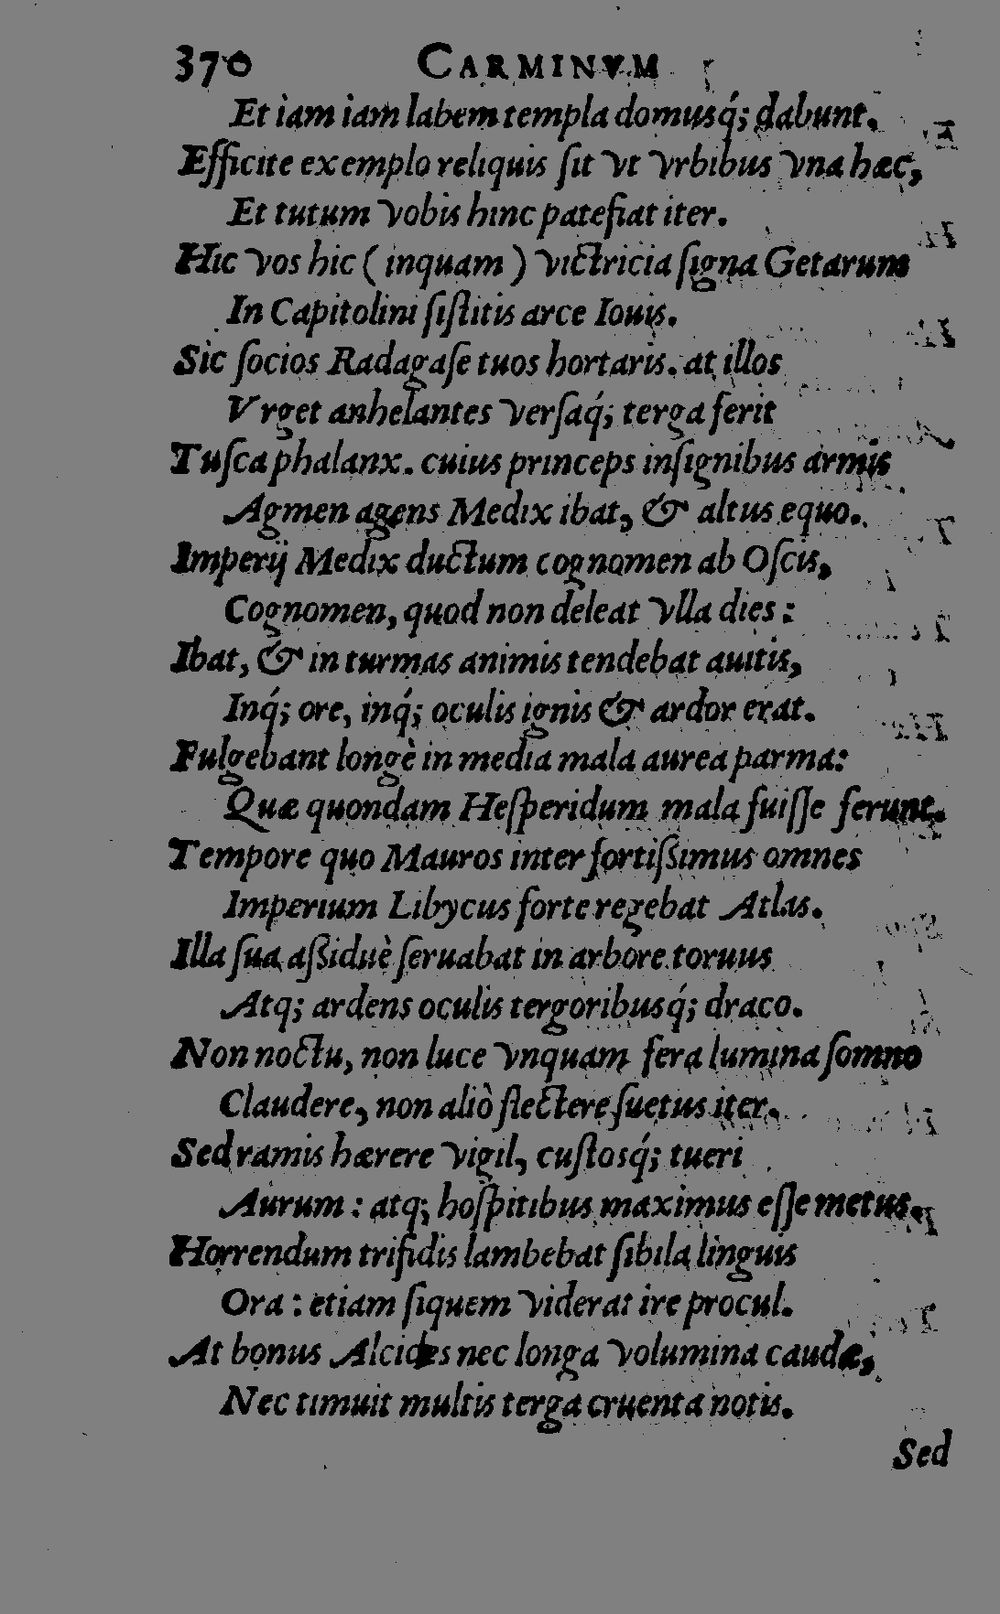 370 CARMINVM
Et iam iam labem templa domusq́; dabunt.
Efficite exemplo reliquis ſit vt vrbibus vna hæc,
Et tutum vobis hinc patefiat iter.
Hic vos hic ( inquam ) victricia ſigna Getarum
In Capitolini ſiſtitis arce Iouis.
Sic ſocios Radagaſe tuos hortaris. at illos
Vrget anhelantes verſaq́; terga ferit
Tuſca phalanx. cuius princeps inſignibus armis
Agmen agens Medix ibat, & altus equo.
Imperij Medix ductum cognomen ab Oſcis,
Cognomen, quod non deleat vlla dies:
Ibat, & in turmas animis tendebat auitis,
Inq́; ore, inq́; oculis ignis & ardor erat.
Fulgebant longè in media mala aurea parma:
Quæ quondam Heſperidum mala fuiſſe ferunt.
Tempore quo Mauros inter fortiſſimus omnes
Imperium Libycus forte regebat Atlas.
Illa ſua aſſiduè ſeruabat in arbore toruus
Atq; ardens oculis tergoribusq́; draco.
Non noctu, non luce vnquam fera lumina ſomno
Claudere, non aliò flectere ſuetus iter.
Sed ramis hærere vigil, cuſtosq́; tueri
Aurum: atq; hoſpitibus maximus eſſe metus.
Horrendum trifidis lambebat ſibila linguis
Ora: etiam ſiquem viderat ire procul.
At bonus Alcides nec longa volumina caudæ,
Nec timuit multis terga cruenta notis.
Sed